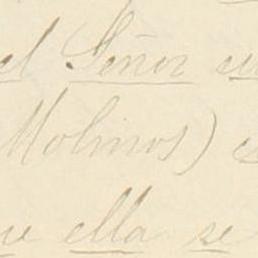 el Señor en
Molinos) e
que ella se